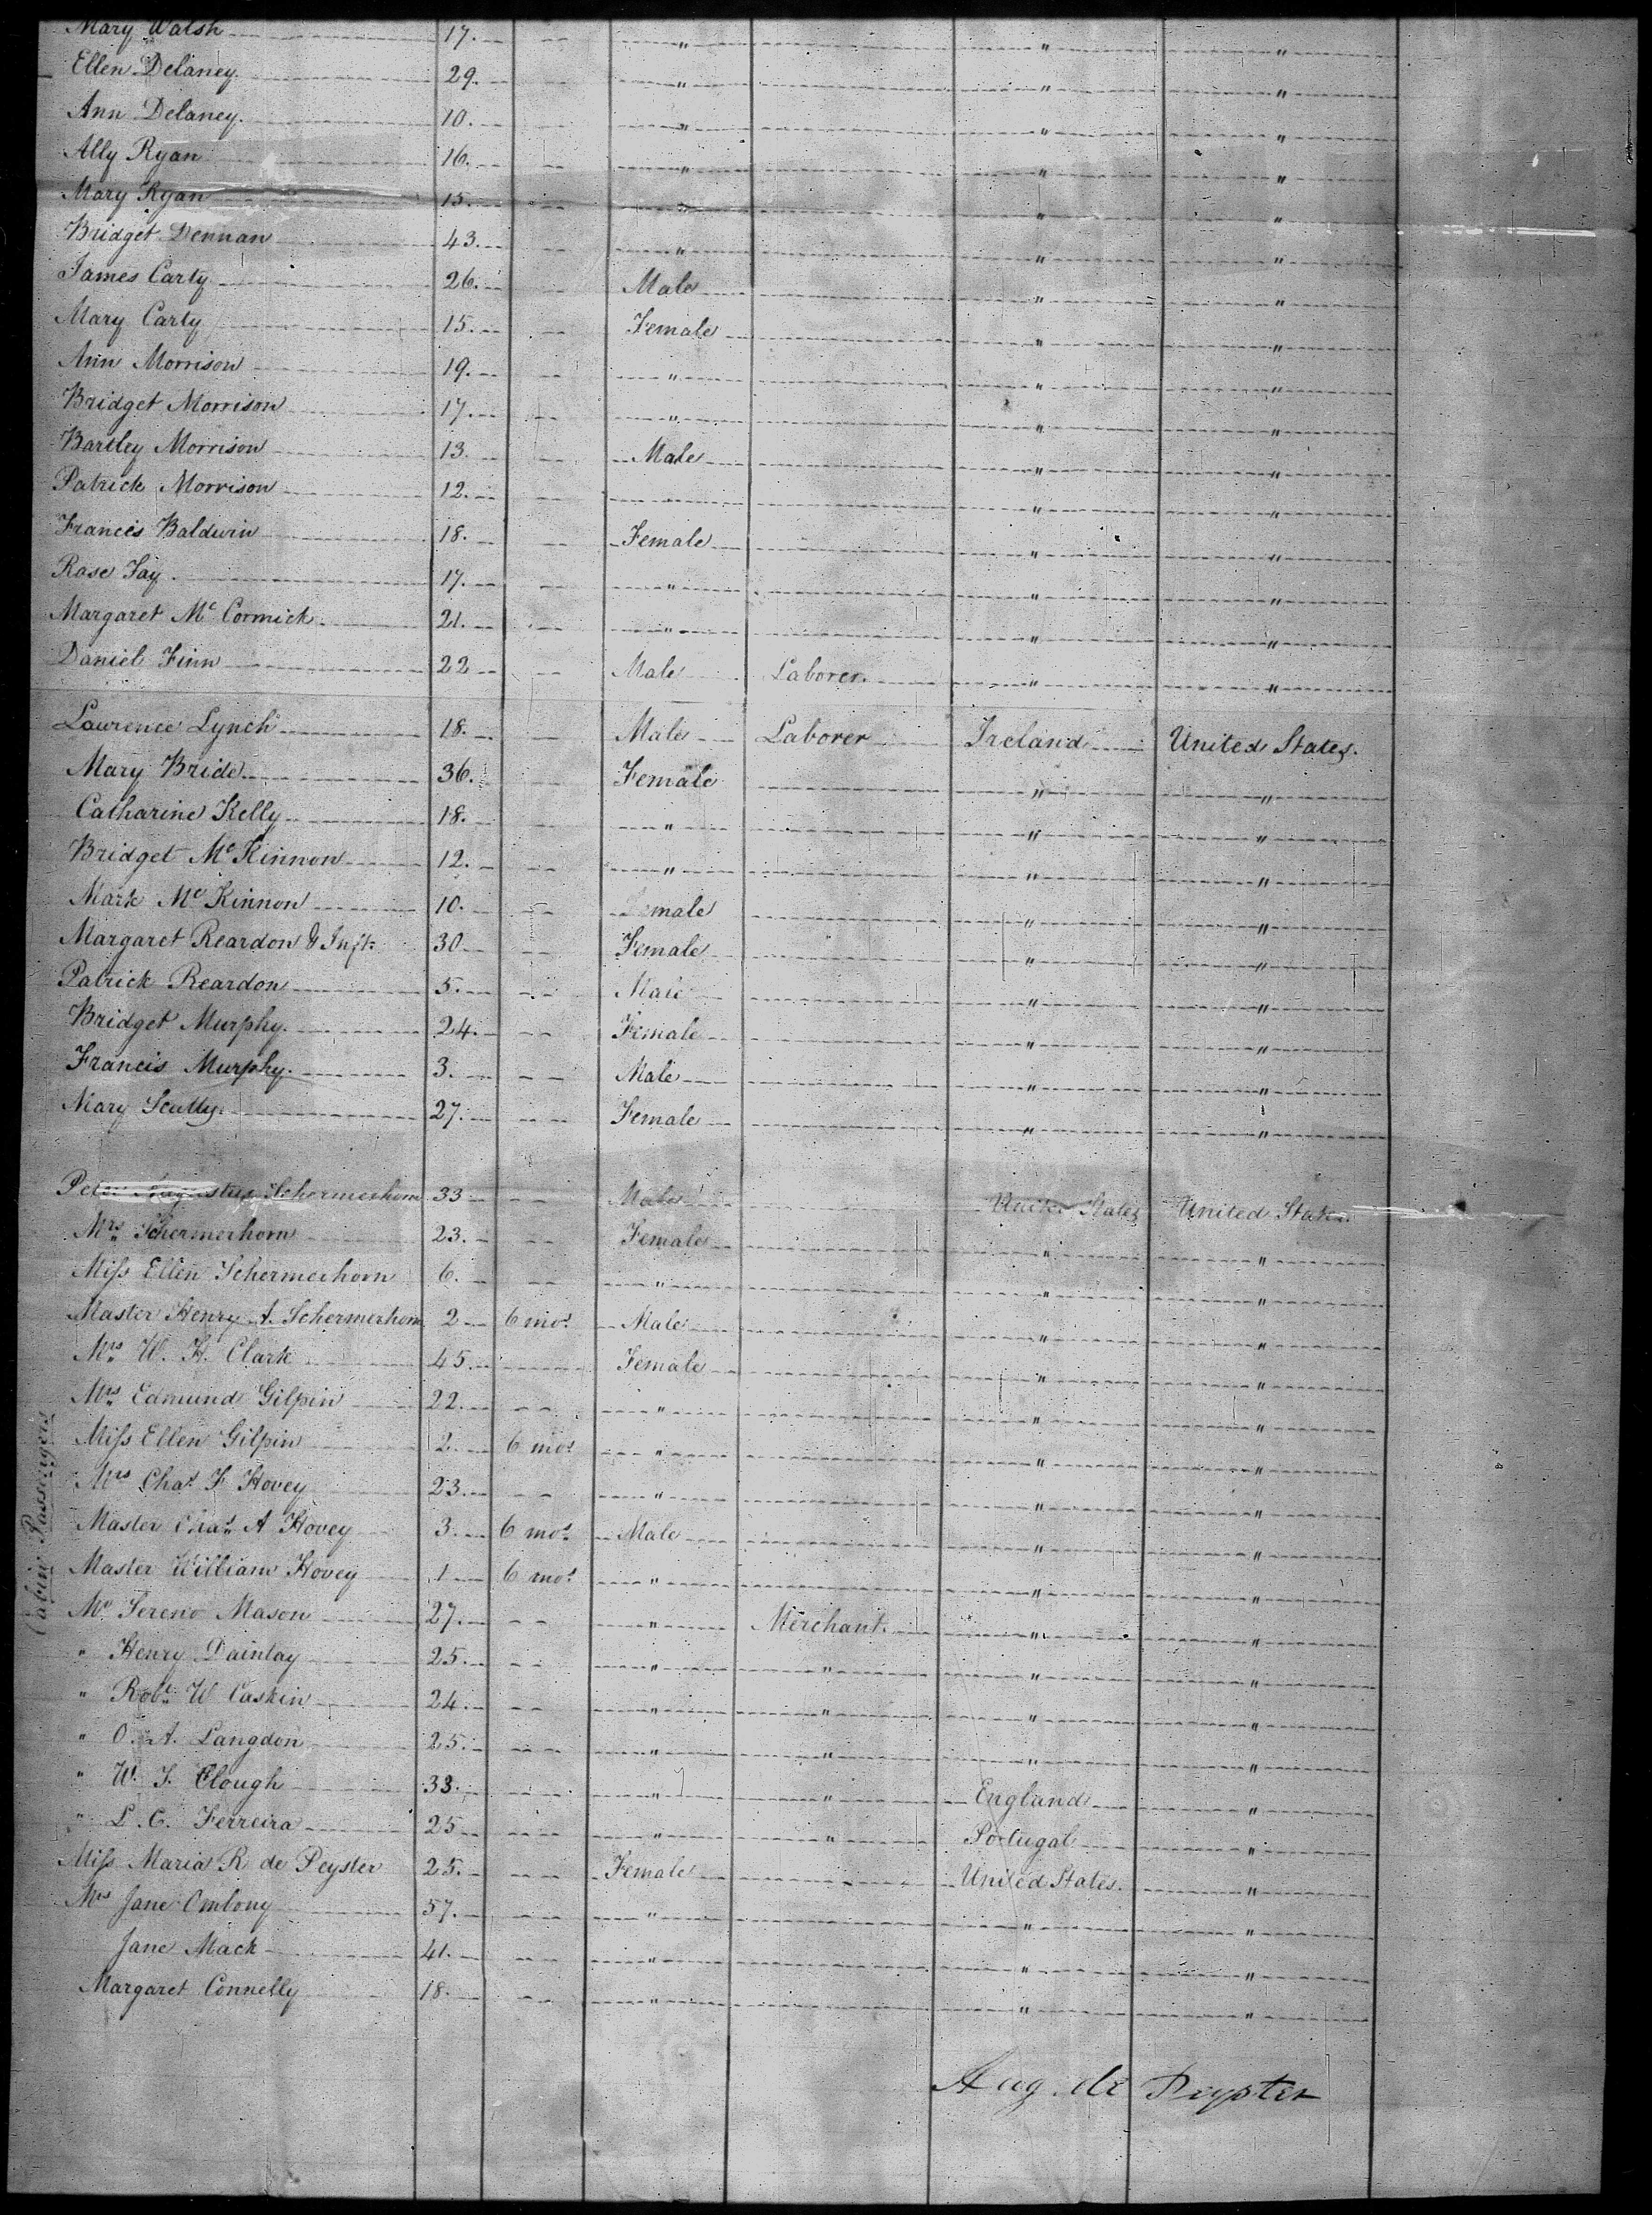 Mary Walsh 17. " " "
Ellen Delaney. 29. " " "
Ann Delaney. 10. " " "
Ally Ryan 16. " " "
Mary Ryan 15. " " "
Bridget Dennan 43. " " "
James Carty 26. Male " "
Mary Carty 15. Female " "
Ann Morrison 19. " " "
Bridget Morrison 17. " " "
Bartley Morrison 13. Male " "
Patrick Morrison 12. " "
Francis Baldwin 18. Female " "
Rose Fay. 17. " " "
Margaret Mc Cormick. 21. " " "
Daniel Finn 22 Male Laborer. " "
Lawrence Lynch 18. Male Laborer Ireland United States.
Mary Bride 36. Female " "
Catharine Kelly 18. " " "
Bridget Mc Kinnon 12. " " "
Mark Mc Kinnon 10. Female " "
Margaret Reardon & Inft. 30 Female " "
Patrick Reardon 5. Male " "
Bridget Murphy. 24. Female " "
Francis Murphy. 3. Male " "
Mary Scully. 27. Female " "
Cabin Passengers
Peter Augustus Schermerhorn 33 Male United States United States.
Mrs Schermerhorn 23. Female " "
Miss Ellen Schermerhorn 6. " " "
Master Henry A. Schermerhorn 2 6 mos. Male " "
Mrs W. H. Clark 45. Female " "
Mrs Edmund Gilpin 22. " " "
Miss Ellen Gilpin 2. 6 mos " " "
Mrs Chas. F Hovey 23. " " "
Master Chas. A Hovey 3. 6 mos. Male " "
Master William Hovey 1 6 mos. " " "
Mr Sereno Mason 27. " Merchant. " "
" Henry Dainlay 25. " " " "
" Robt. W Caskin 24. " " " "
" O. A. Langdon 25. " " " "
" W. J. Clough 33. " " England "
" L. C. Ferreira 25 " " Portugal "
Miss Maria R de Peyster 25. Female United States. "
Mrs Jane Omlony 57. " " "
Jane Mack 41. " " "
Margaret Connelly 18. " " "
Aug. de Peyster